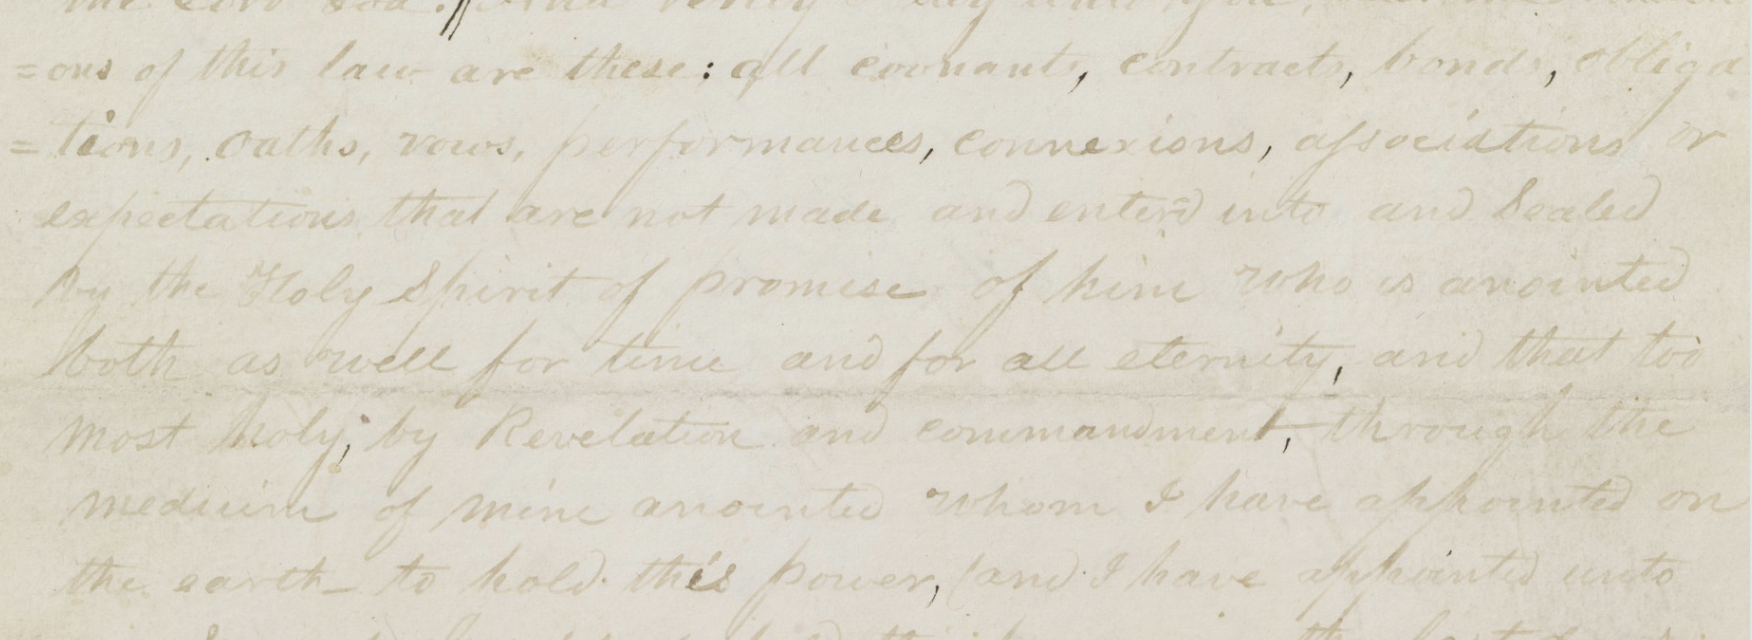 the Lord God. And verily I say unto you,
=ons of this law are these: all covenants, contracts, bonds, obliga
=tions, oaths, vows, performances, connexions, associations or
expectations that are not made and enterd into and Sealed
by the Holy Spirit of promise of him who is anointed
both as well for time and for all eternity, and that too
most holy; by Revelation and commandment, through the
medium of mine anointed whom I have appointed on
the earth to hold this power, (and I have appointed unto